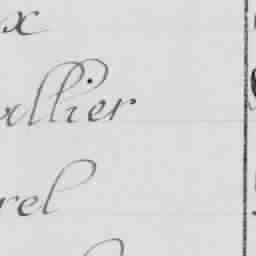 x
allier
rel